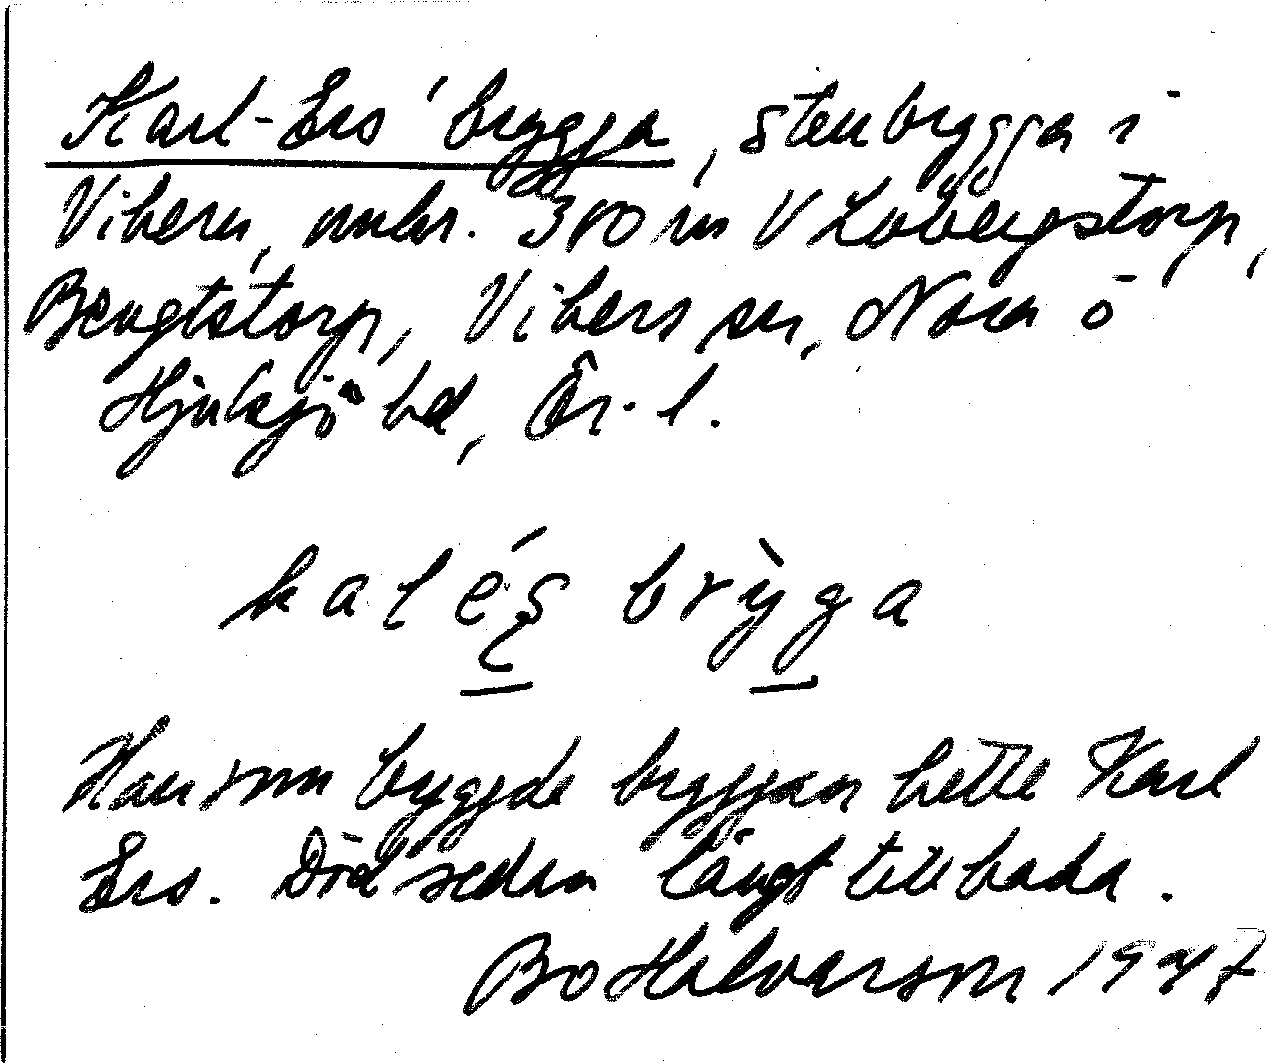 Karl-Ers' brygga, stenbrygga i
Vikern, omkr. 300 m V Lobergstorp,
Bengtstorp, Vikers sn, Nora o
Hjulsjö bd, Ör. l.
kaléʂ brỳga
Han som byggde bryggan hette Karl
Ers. Död sedan långt tillbaka.
Bo Halvarson 1947